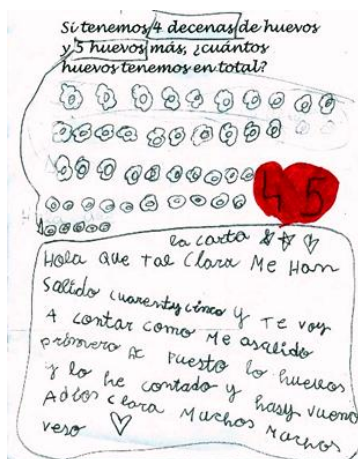 Si tenemos 4 decenas de huevos
y 5 huevos más, ¿cuántos
huevos tenemos en total?
45
la carta
Hola que tal Clara Me Han
salido cuarentycinco y Te voy
A contar como Me asalido
primero Ac puesto lo huevos
y lo he contado y hasy vueno
Adios Clara Muchos Muchos
veso